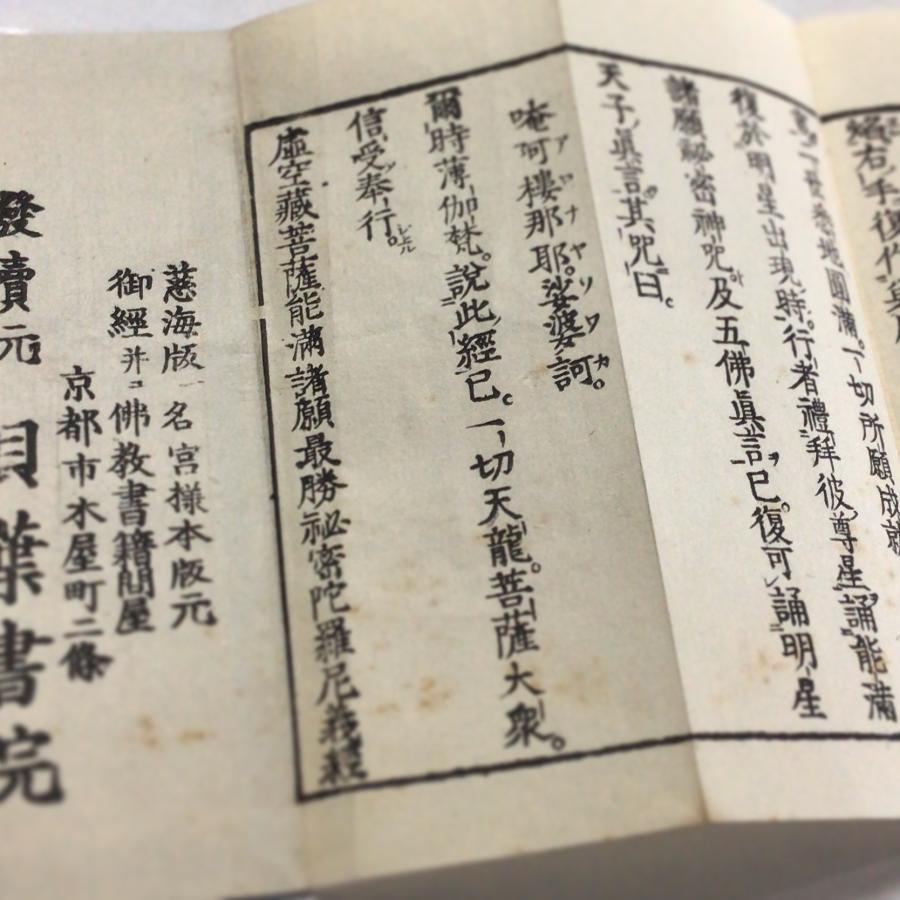 絡右手復作
悉地圓滿。一切所願成就
復於明星出現時。行者禮拜彼尊星誦能滿
諸願祕密神呪及五佛眞言已。復可誦明星
天子眞言。其呪曰。
唵阿樓那耶。娑婆訶。
爾時薄伽梵。說此經已。一切天龍。菩薩大衆。
信受奉行。
虛空藏菩薩能滿諸願最勝祕密陀羅尼義經
慈海版一名宮様本版元
御經并ニ佛教書籍問屋
京都市木屋町二條
發賣元 貝葉書院